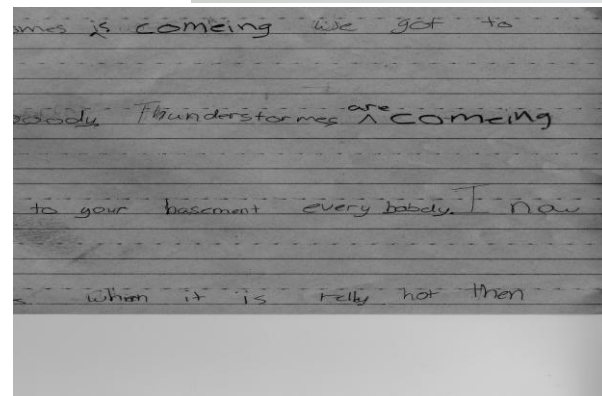 omes is comeing we got to
bobody. Thunderstormes are comeing
to your basement every babdy. I now
s when it is relly hot then